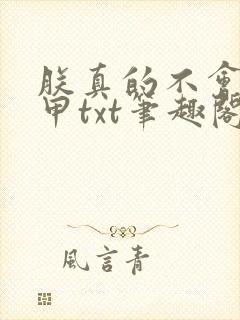 朕真的不會
甲txt筆趣閣
風言青